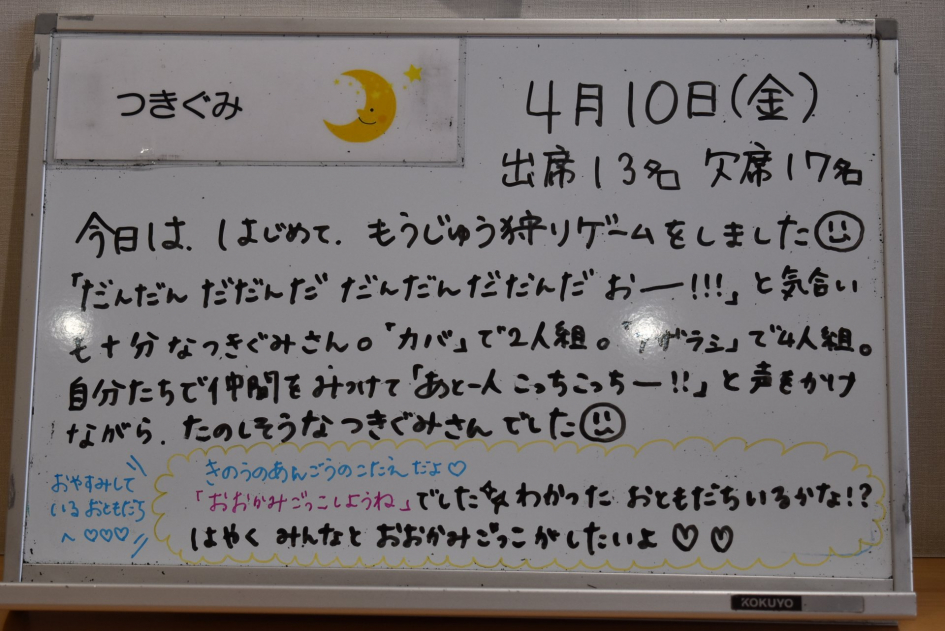 つきぐみ
4月10日(金)
出席13名 欠席17名
今日は、はじめて、もうじゅう狩りゲームをしました
「だんだん だだんだ だんだんだだんだ おー!!!」と気合い
も十分なつきぐみさん。「カバ」で2人組。「アザラシ」で4人組。
自分たちで仲間をみつけて「あと一人 こっちこっちー!!」と声をかけ
ながら、たのしそうなつきぐみさんでした
おやすみして
いるおともだち
へ♡♡♡
きのうのあんごうのこたえだよ♡
「おおかみごっこしようね」でした☆ わかった おともだちいるかな!?
はやく みんなと おおかみごっこがしたいよ♡♡
KOKUYO